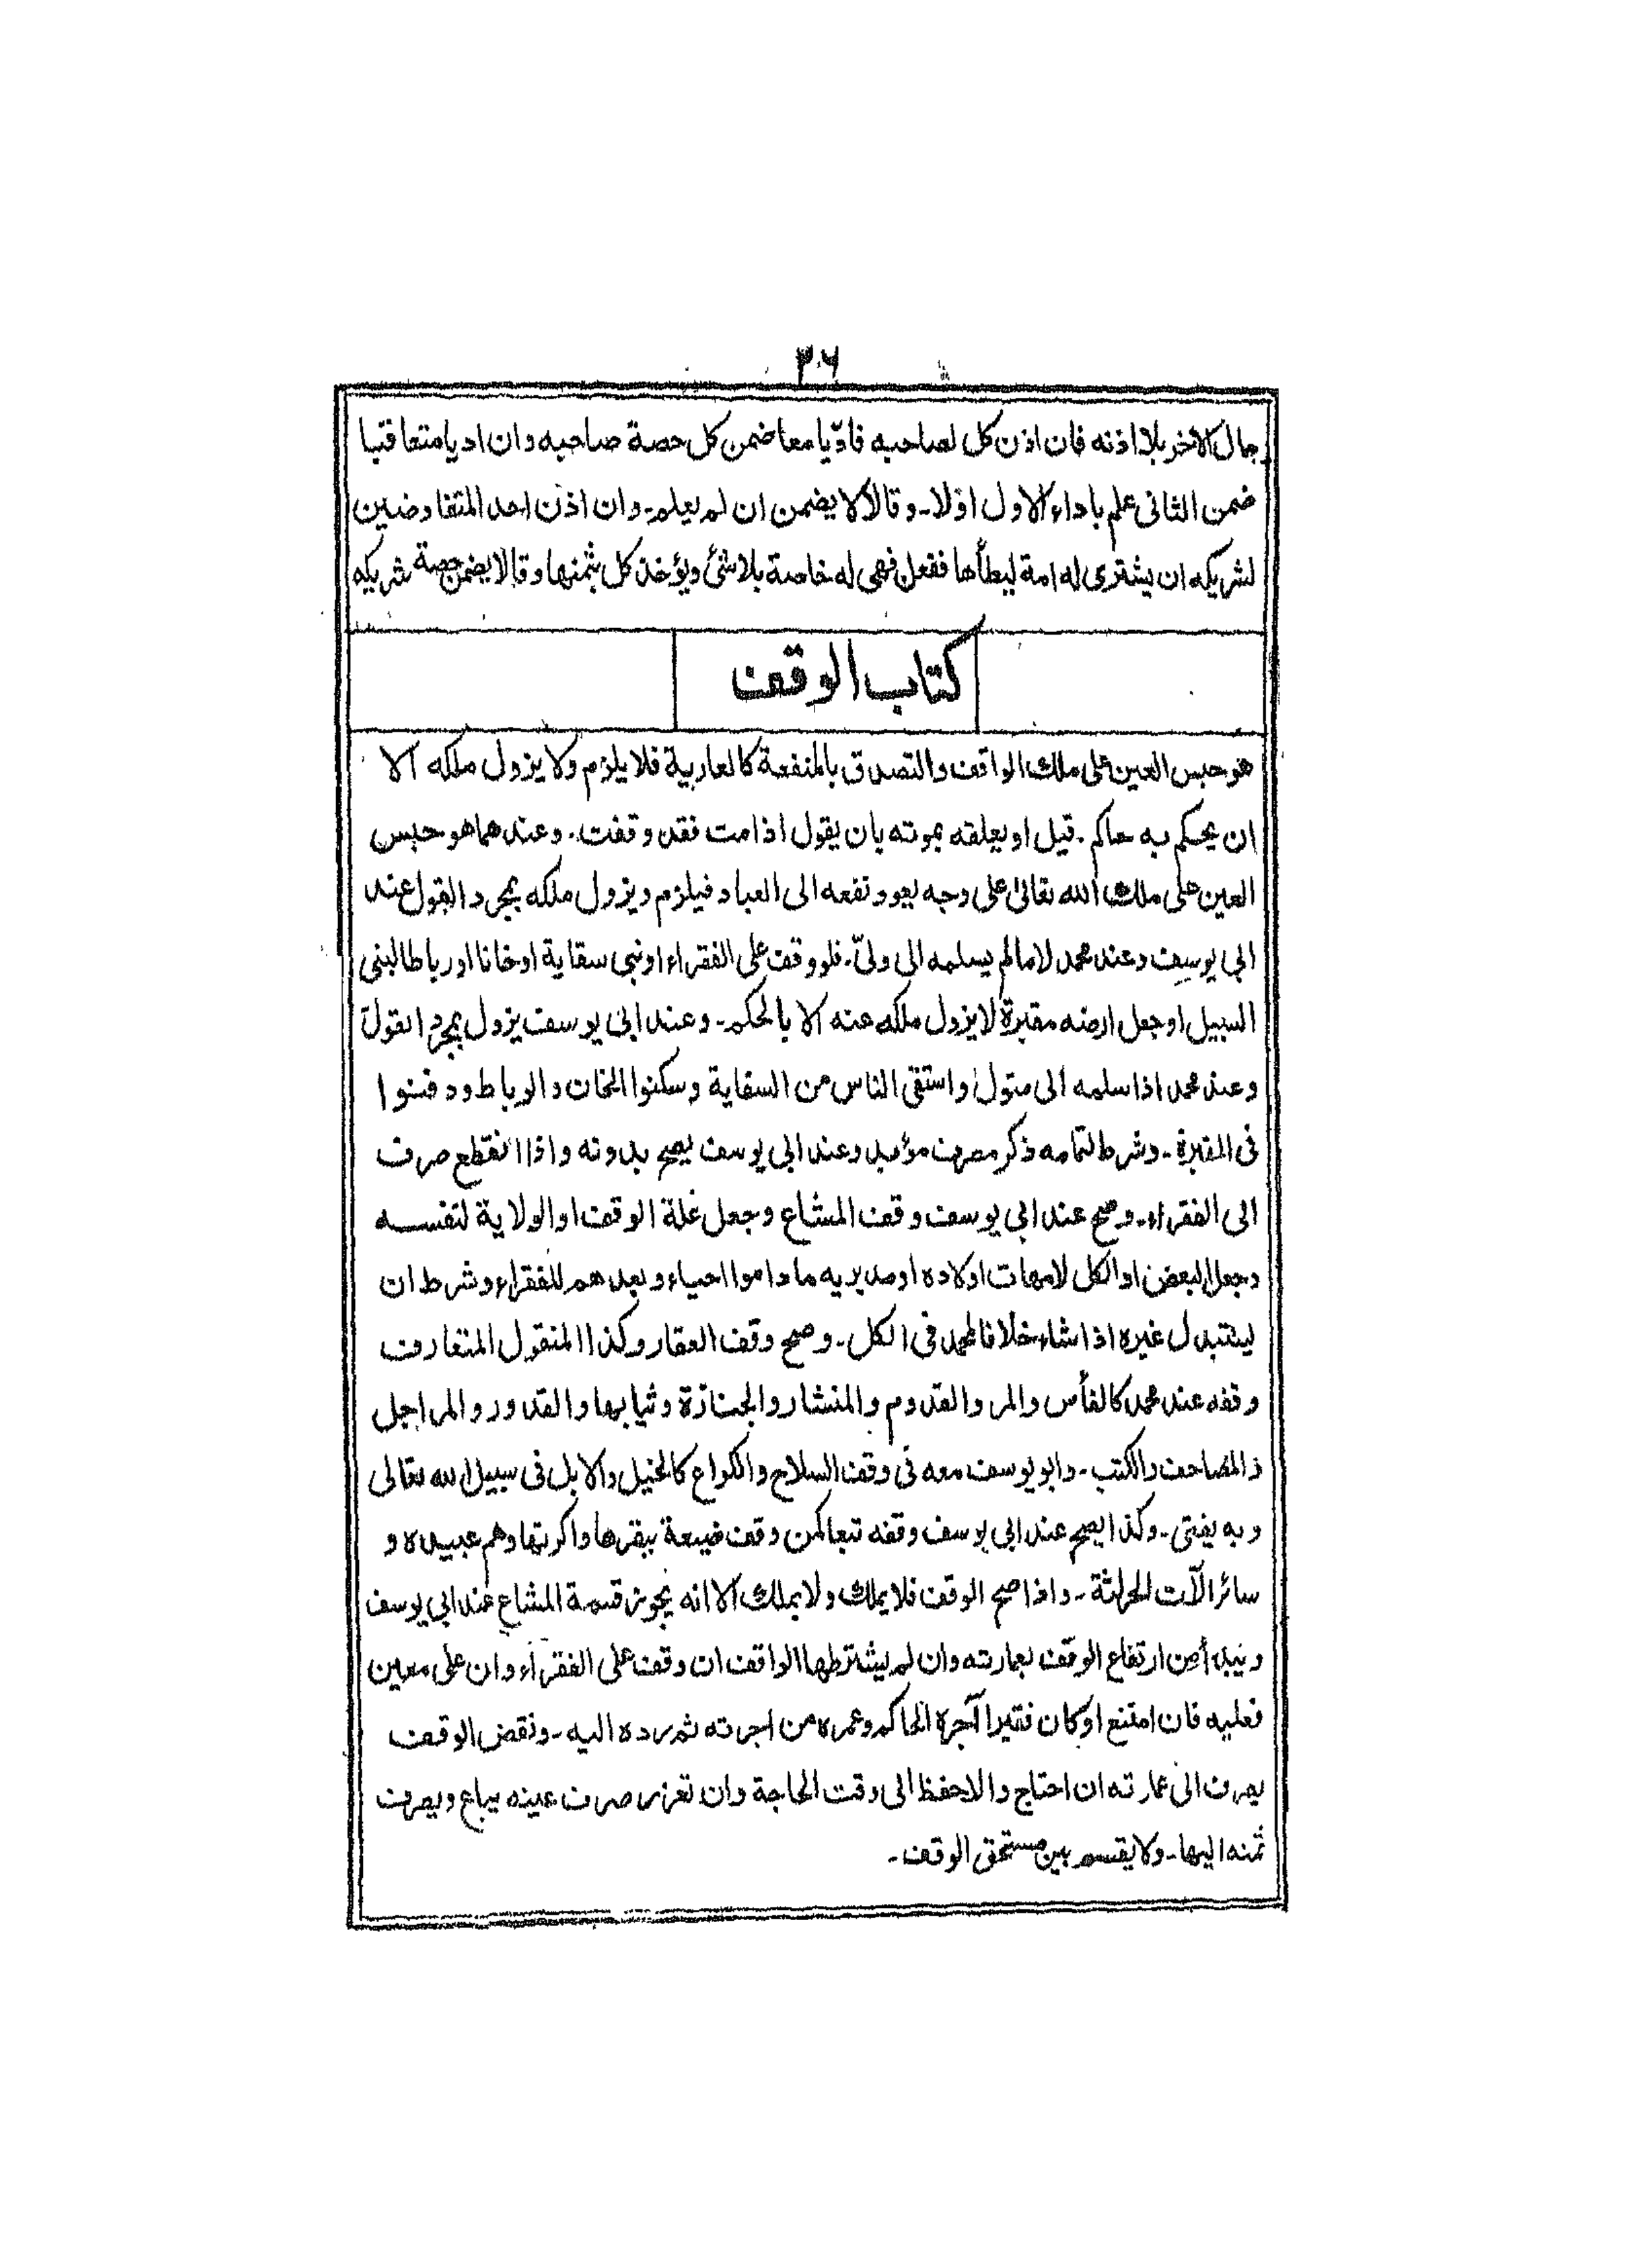 ٣٠٦
مال الاخر بلا اذنه فان اذن كل لصاحبه فادّيا معا ضمن كل حصة صاحبه وان اديا متعاقبا
ضمن الثانى علم باداء الاول اولا۔ وقالا لا يضمن ان لم يعلم۔ وان اذن احد المتفاوضين
لشريكه ان يشترى له امة ليطأها ففعل فهى له خاصة بلا شئ ويؤخذ كل بثمنها وقالا يضمن حصة شريكه
كتاب الوقف
هو حبس العين على ملك الواقف والتصدق بالمنفعة كالعارية فلا يلزم ولا يزول ملكه الا
ان يحكم به حاكم۔ قيل او يعلقه بموته بان يقول اذا مت فقد وقفت۔ وعندهما هو حبس
العين على ملك الله تعالى على وجه يعود نفعه الى العباد فيلزم ويزول ملكه بمجرد القول عند
ابى يوسف وعند محمد لا مالم يسلمه الى ولىّ۔ فلو وقف على الفقراء او بنى سقاية او خانا او رباطا لبنى
السبيل او جعل ارضه مقبرة لا يزول ملكه عنه الا بالحكم۔ وعند ابى يوسف يزول بمجرد القول
وعند محمد اذا سلمه الى متول واستقى الناس من السقاية وسكنوا الخان والرباط ودفنوا
فى المقبرة۔ وشرط لتمامه ذكر مصرف مؤبد وعند ابى يوسف يصح بدونه واذا انقطع صرف
الى الفقراء۔ وصح عند ابى يوسف وقف المشاع وجعل غلة الوقف او الولاية لنفسه
وجعل البعض او الكل لامهات اولاده او مدبريه ماداموا احياء وبعدهم للفقراء وشرط ان
يستبدل غيره اذا شاء خلافا لمحمد فى الكل۔ وصح وقف العقار وكذا المنقول المتعارف
وقفه عند محمد كالفأس والمر والقدوم والمنشار والجنازة وثيابها والقدور والمراجل
والمصاحف والكتب۔ وابو يوسف معه فى وقف السلاح والكراع كالخيل والابل فى سبيل الله تعالى
وبه يفتى۔ وكذا يصح عند ابى يوسف وقفه تبعا كمن وقف ضيعة ببقرها واكرتها وهم عبيده و
سائر الآت الحراثة۔ واذا صح الوقف فلا يملك ولا يملك الا انه يجوز قسمة المشاع عند ابى يوسف
ويبدأ من ارتفاع الوقف بعمارته وان لم يشترطها الواقف ان وقف على الفقراء وان على معين
فعليه فان امتنع او كان فقيرا آجره الحاكم وعمره من اجرته ثم رده اليه۔ ونقض الوقف
يصرف الى عمارته ان احتاج والا حفظ الى وقت الحاجة وان تعزر صرف عينه يباع ويصرف
ثمنه اليها۔ ولا يقسم بين مستحق الوقف۔